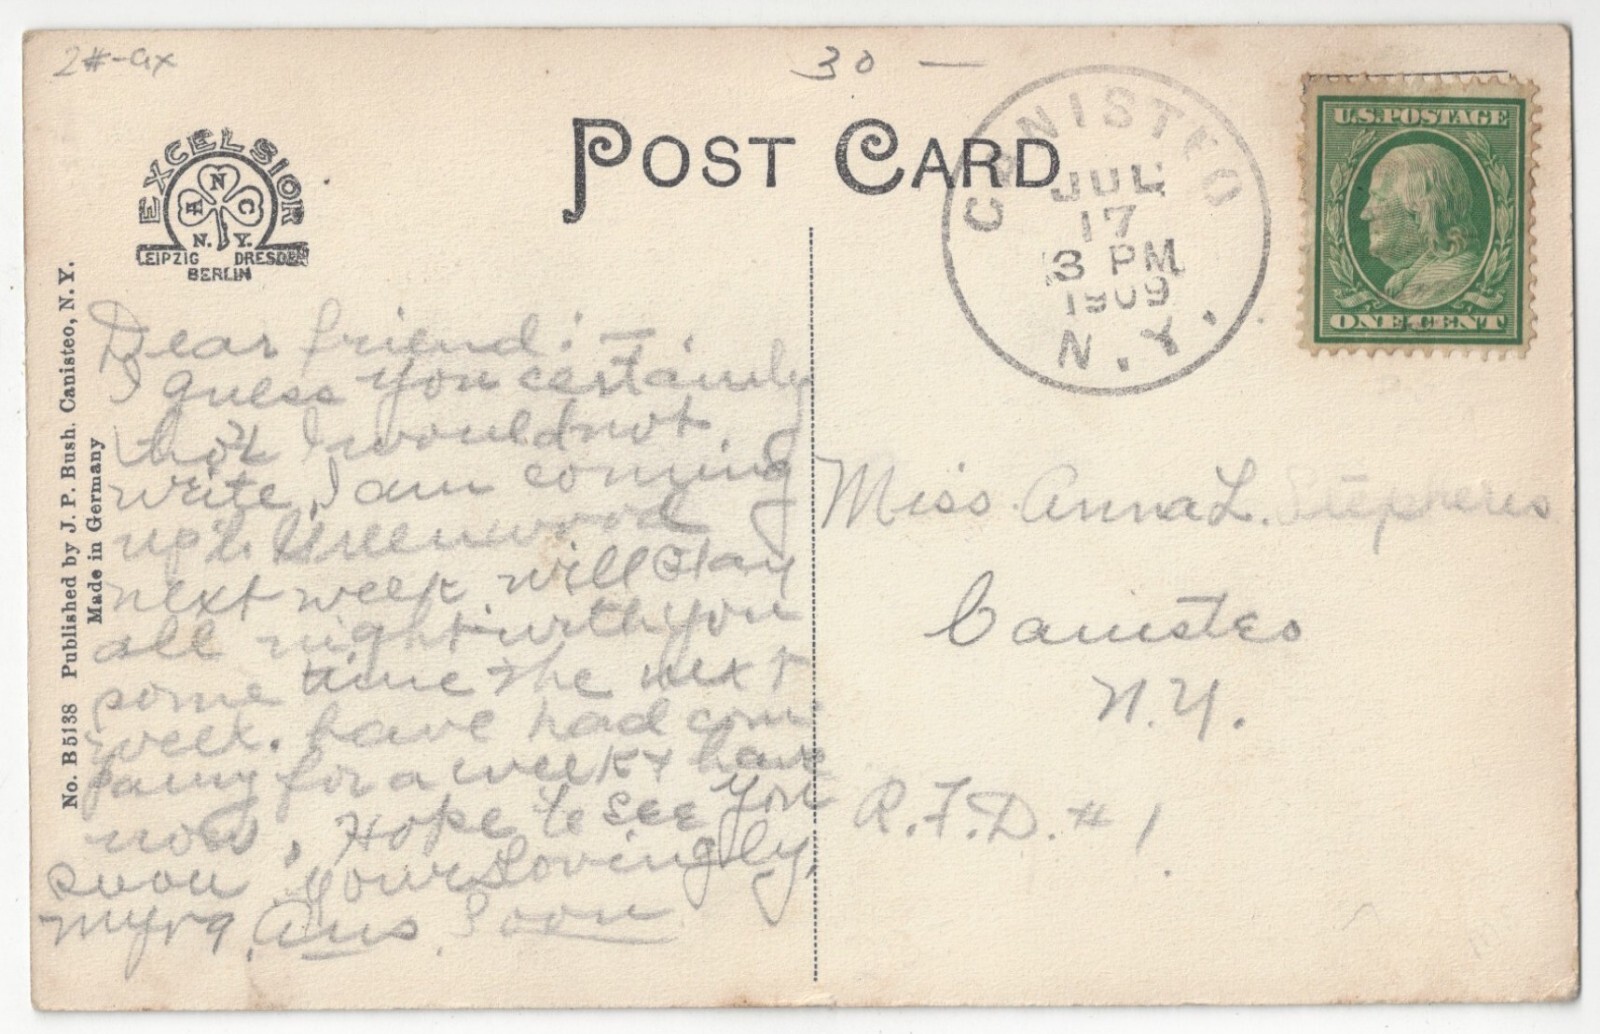 2#-ax
30 —
EXCELSIOR
A N C
N. Y.
LEIPZIG DRESDEN
BERLIN
POST CARD
CANISTEO
JUL
17
3 PM
1909
N.Y.
U.S.POSTAGE
ONE CENT
No. B 5138 Published by J. P. Bush. Canisteo, N. Y.
Made in Germany
Dear friend: —
I guess you certainly
I would not
write, I am coming
up to Greenwood
next week will stay
all night with you
some time the next
week. have had com
pany for a week & have
now. Hope to see you
soon yours lovingly,
Myra Ans Soon
Miss Anna L. Stephens
Canisteo
N.Y.
R.F.D. # 1